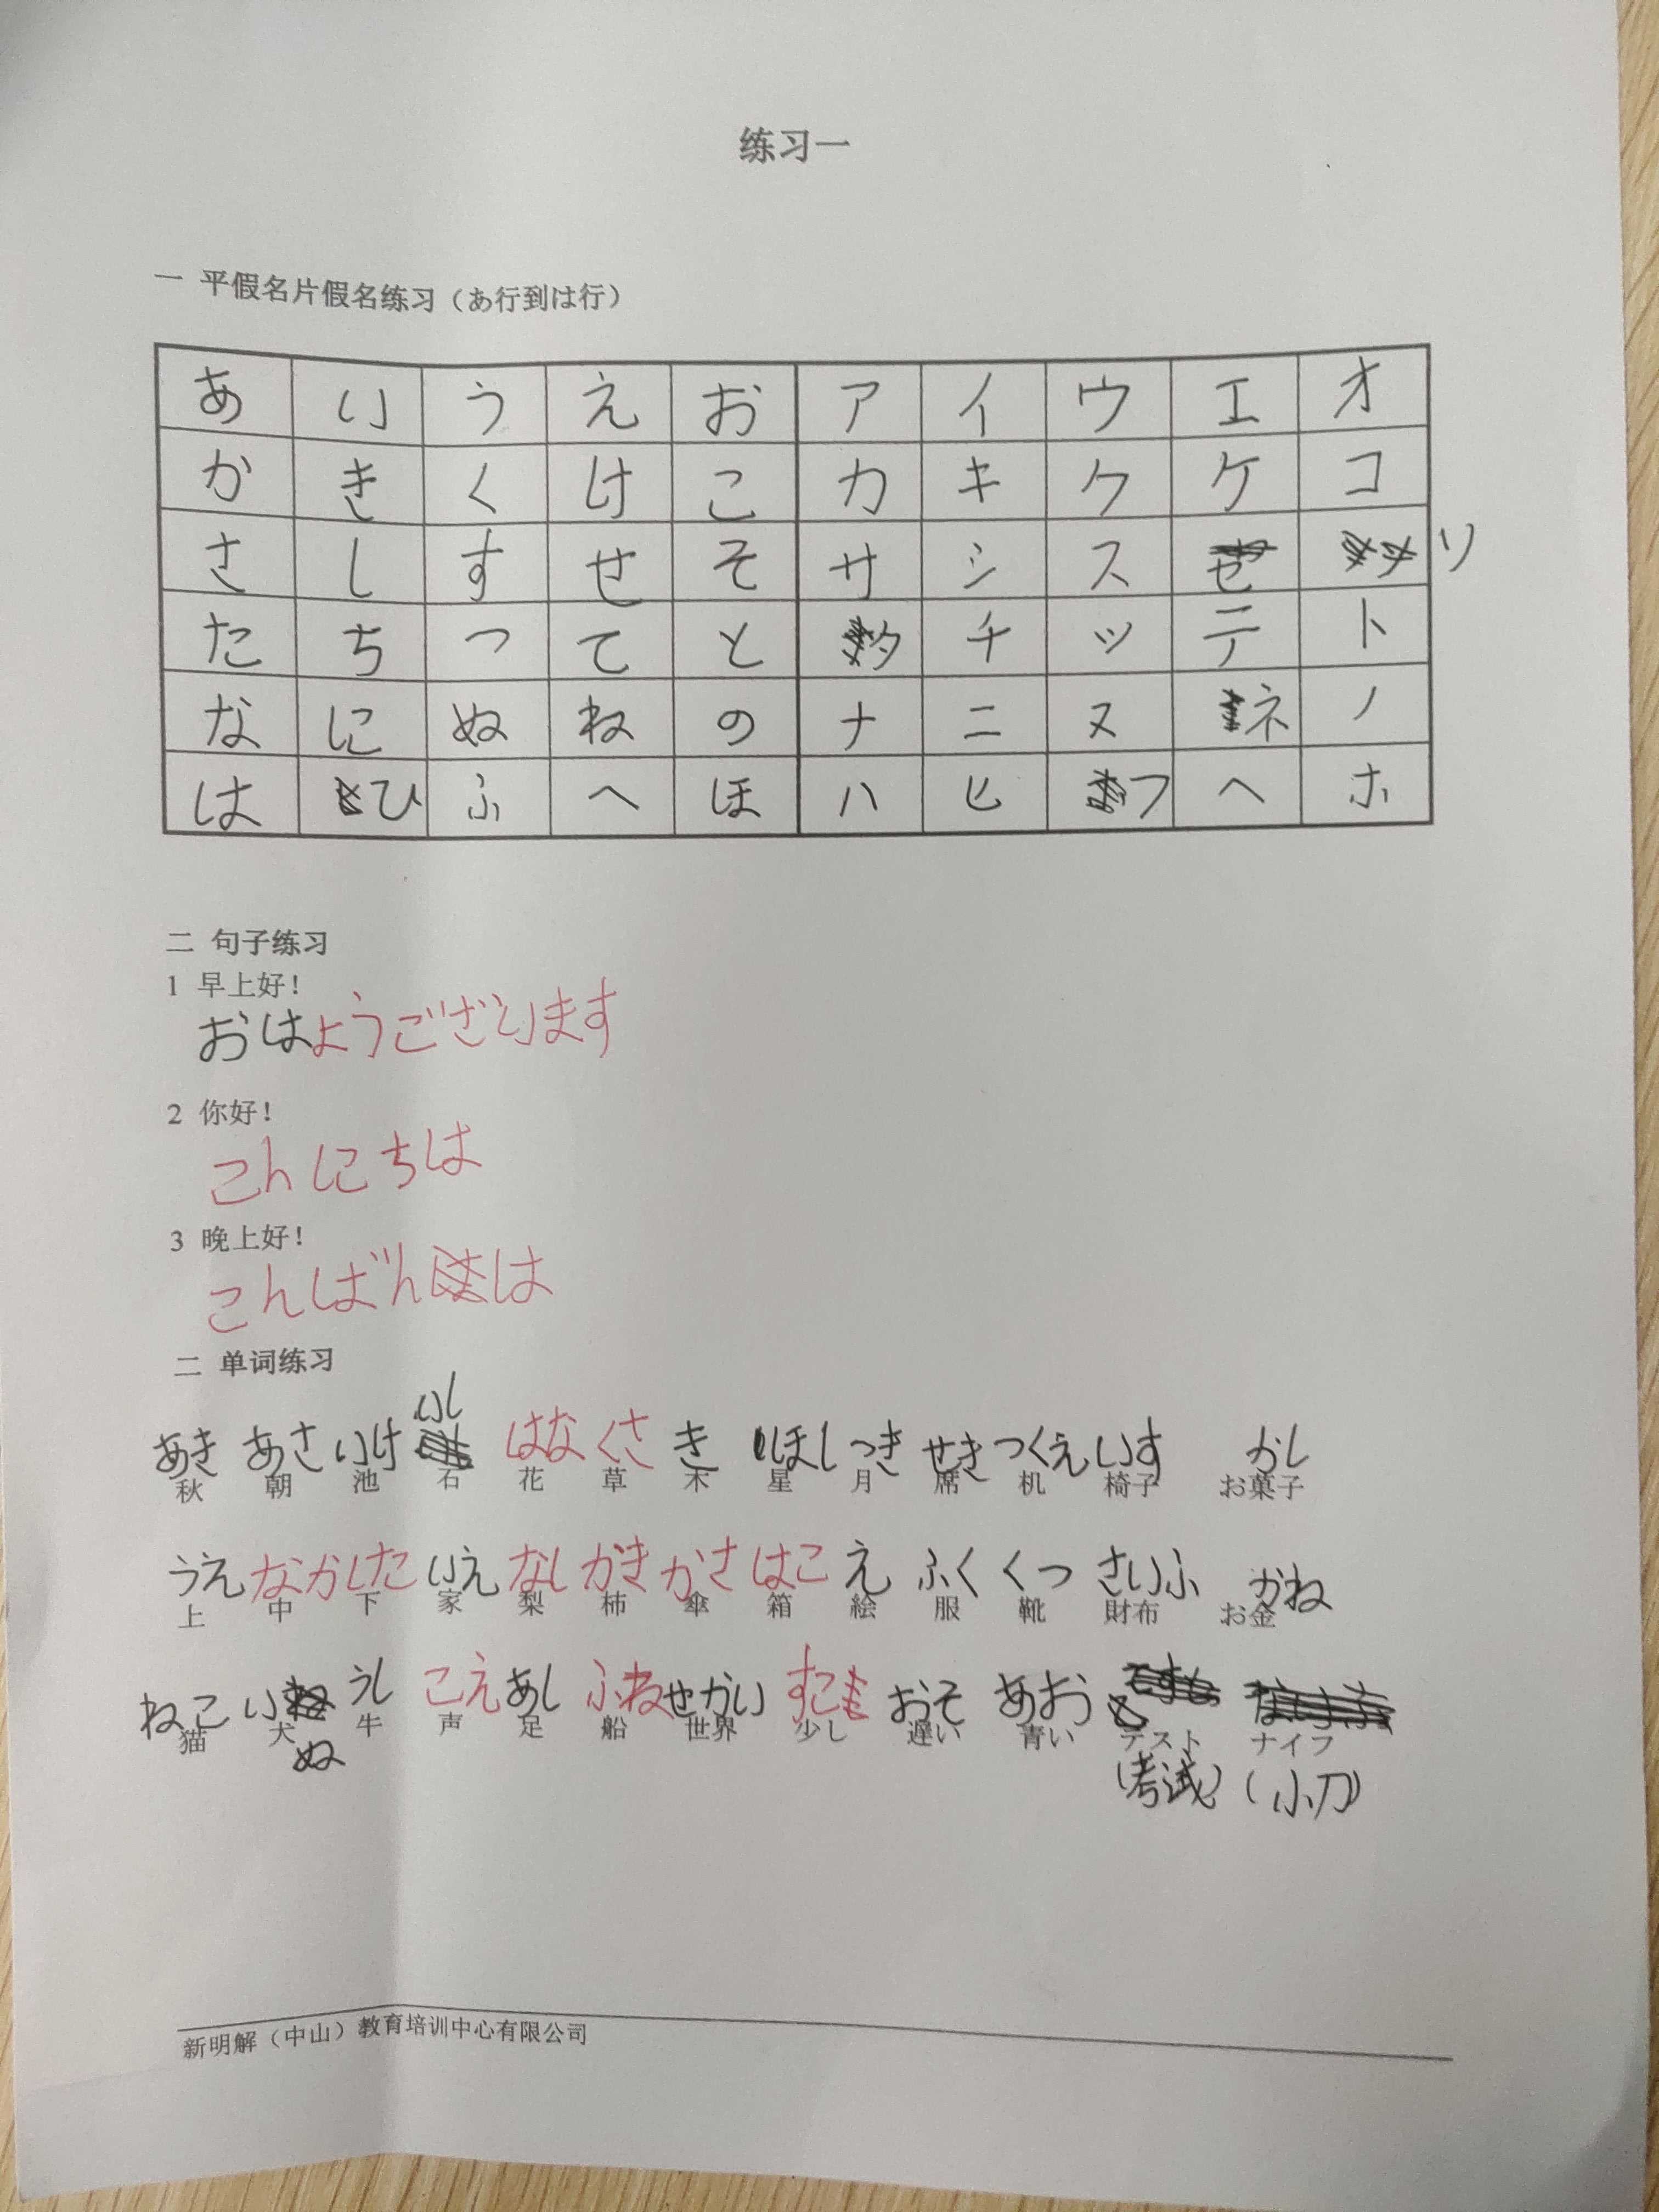 练习一
一 平假名片假名练习（あ行到は行）
あ い う え お ア イ ウ エ オ
か き く け こ カ キ ク ケ コ
さ し す せ そ サ シ ス せ ソ
た ち つ て と タ チ ツ テ ト
な に ぬ ね の ナ ニ ヌ ネ ノ
は ひ ふ へ ほ ハ ヒ フ ヘ ホ
二 句子练习
1 早上好！
おはようございます
2 你好！
こんにちは
3 晚上好！
こんばんは
二 单词练习
あき あさ いけ いし はな くさ き ほし つき せき つくえ いす かし
秋 朝 池 石 花 草 木 星 月 席 机 椅子 お菓子
うえ なか した いえ なし かき かさ はこ え ふく くつ さいふ かね
上 中 下 家 梨 柿 傘 箱 絵 服 靴 財布 お金
ねこ いぬ うし こえ あし ふね せかい すこ おそ あお
猫 犬 牛 声 足 船 世界 少し 遅い 青い テスト ナイフ
（考试） （小刀）
新明解（中山）教育培训中心有限公司